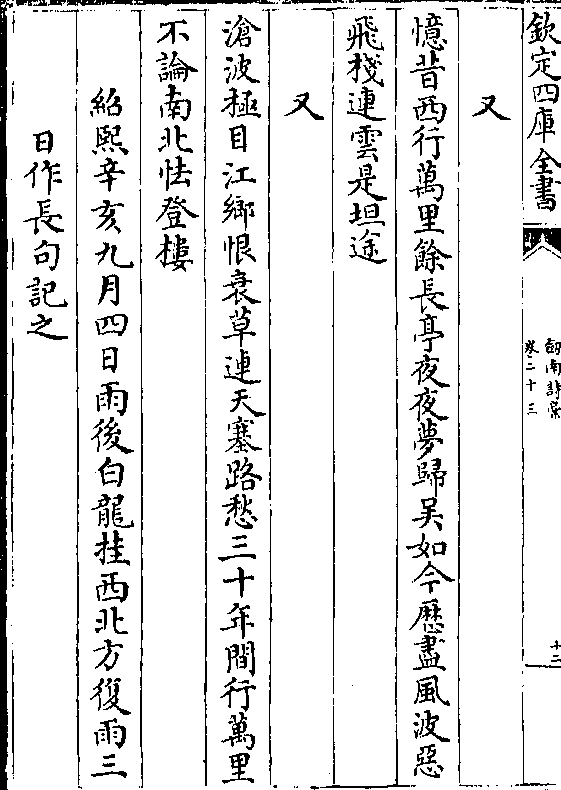 欽定四庫全書
劔南詩稾
卷二十三
十三
又
憶昔西行萬里餘長亭夜夜夢歸吴如今厯盡風波惡
飛棧連雲是坦途
又
滄波極目江鄉恨衰草連天塞路愁三十年間行萬里
不論南北怯登樓
紹熙辛亥九月四日雨後白龍挂西北方復雨三
日作長句記之